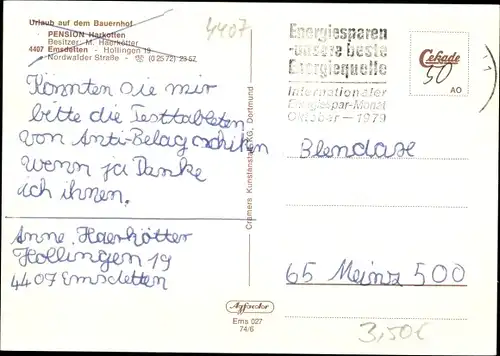 Urlaub auf dem Bauernhof
PENSION Harkotten
Besitzer: M. Haerkötter
4407 Emsdetten - Hollingen 19
Nordwalder Straße - ☏ (0 25 72) 23 57
4407
Energiesparen
-unsere beste
Energiequelle
Internationaler
Energiespar-Monat
Oktober - 1979
Cekade
50
AO
Könnten sie mir
bitte die Testtableten
von Anti-Belag schiken
wenn ja Danke
ich ihnen.
Anne Haerkötter
Hollingen 19
4407 Emsdetten
Cramers Kunstanstalt KG, Dortmund
Blendax
65 Meinz 500
Agfacolor
Ems 027
74/6
3,50€